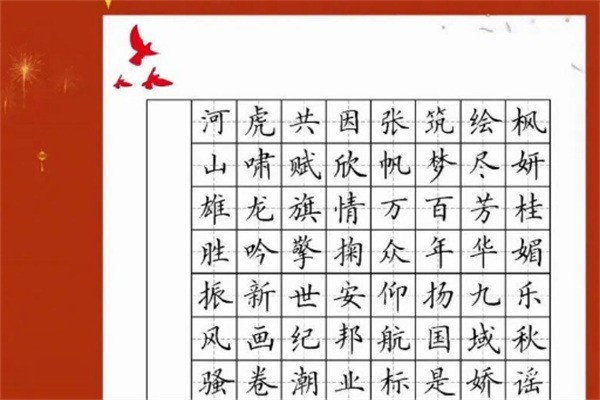 枫妍桂媚乐秋谣
绘尽芳华九域娇
筑梦百年扬国是
张帆万众仰航标
因欣情掬安邦业
共赋旗擎世纪潮
虎啸龙吟新画卷
河山雄胜振风骚